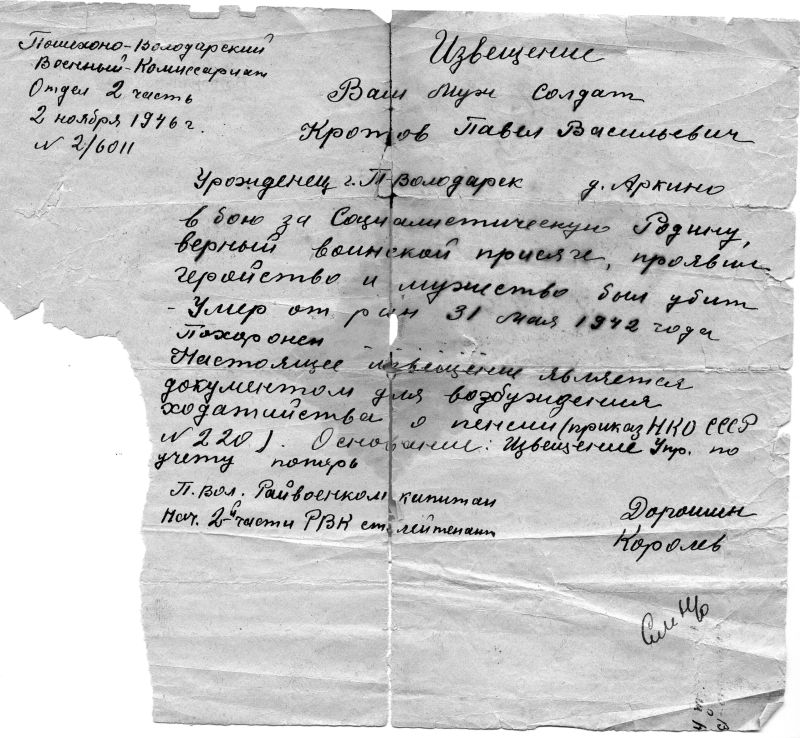 Пошехоно-Володарский
Военный Комиссариат
Отдел 2 часть
2 ноября 1946 г.
N 2/6011
Извещение
Ваш муж солдат
Кротов Павел Васильевич
Урожденец г. П-Володарск д. Аркино
в бою за Социалистическую Родину,
верный воинской присяге, проявил
геройство и мужество был убит
- Умер от ран 31 мая 1942 года
Похоронен
Настоящее извещение является
документом для возбуждения
ходатайства о пенсии (приказ НКО СССР
N 220). Основание: Извещение Упр. по
учету потерь
П. Вол. Райвоенком капитан Дорошин
Нач. 2-й части РВК ст. лейтенант Королев